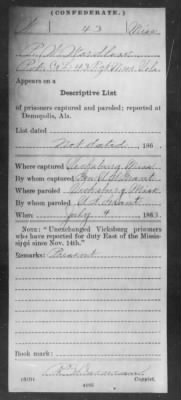 (CONFEDERATE.)
43 Miss
Appears on a
Descriptive List
of prisoners captured and paroled; reported at
Demopolis, Ala.
List dated
Not dated, 186 .
Where captured Vicksburg Miss
By whom captured Gen U S Grant
Where paroled Vicksburg Miss
By whom paroled U S Grant
When July 4, 1863.
NOTE: "Unexchanged Vicksburg prisoners
who have reported for duty East of the Missis-
sippi since Nov. 14th."
Remarks: Present
Book mark:
Copyist.